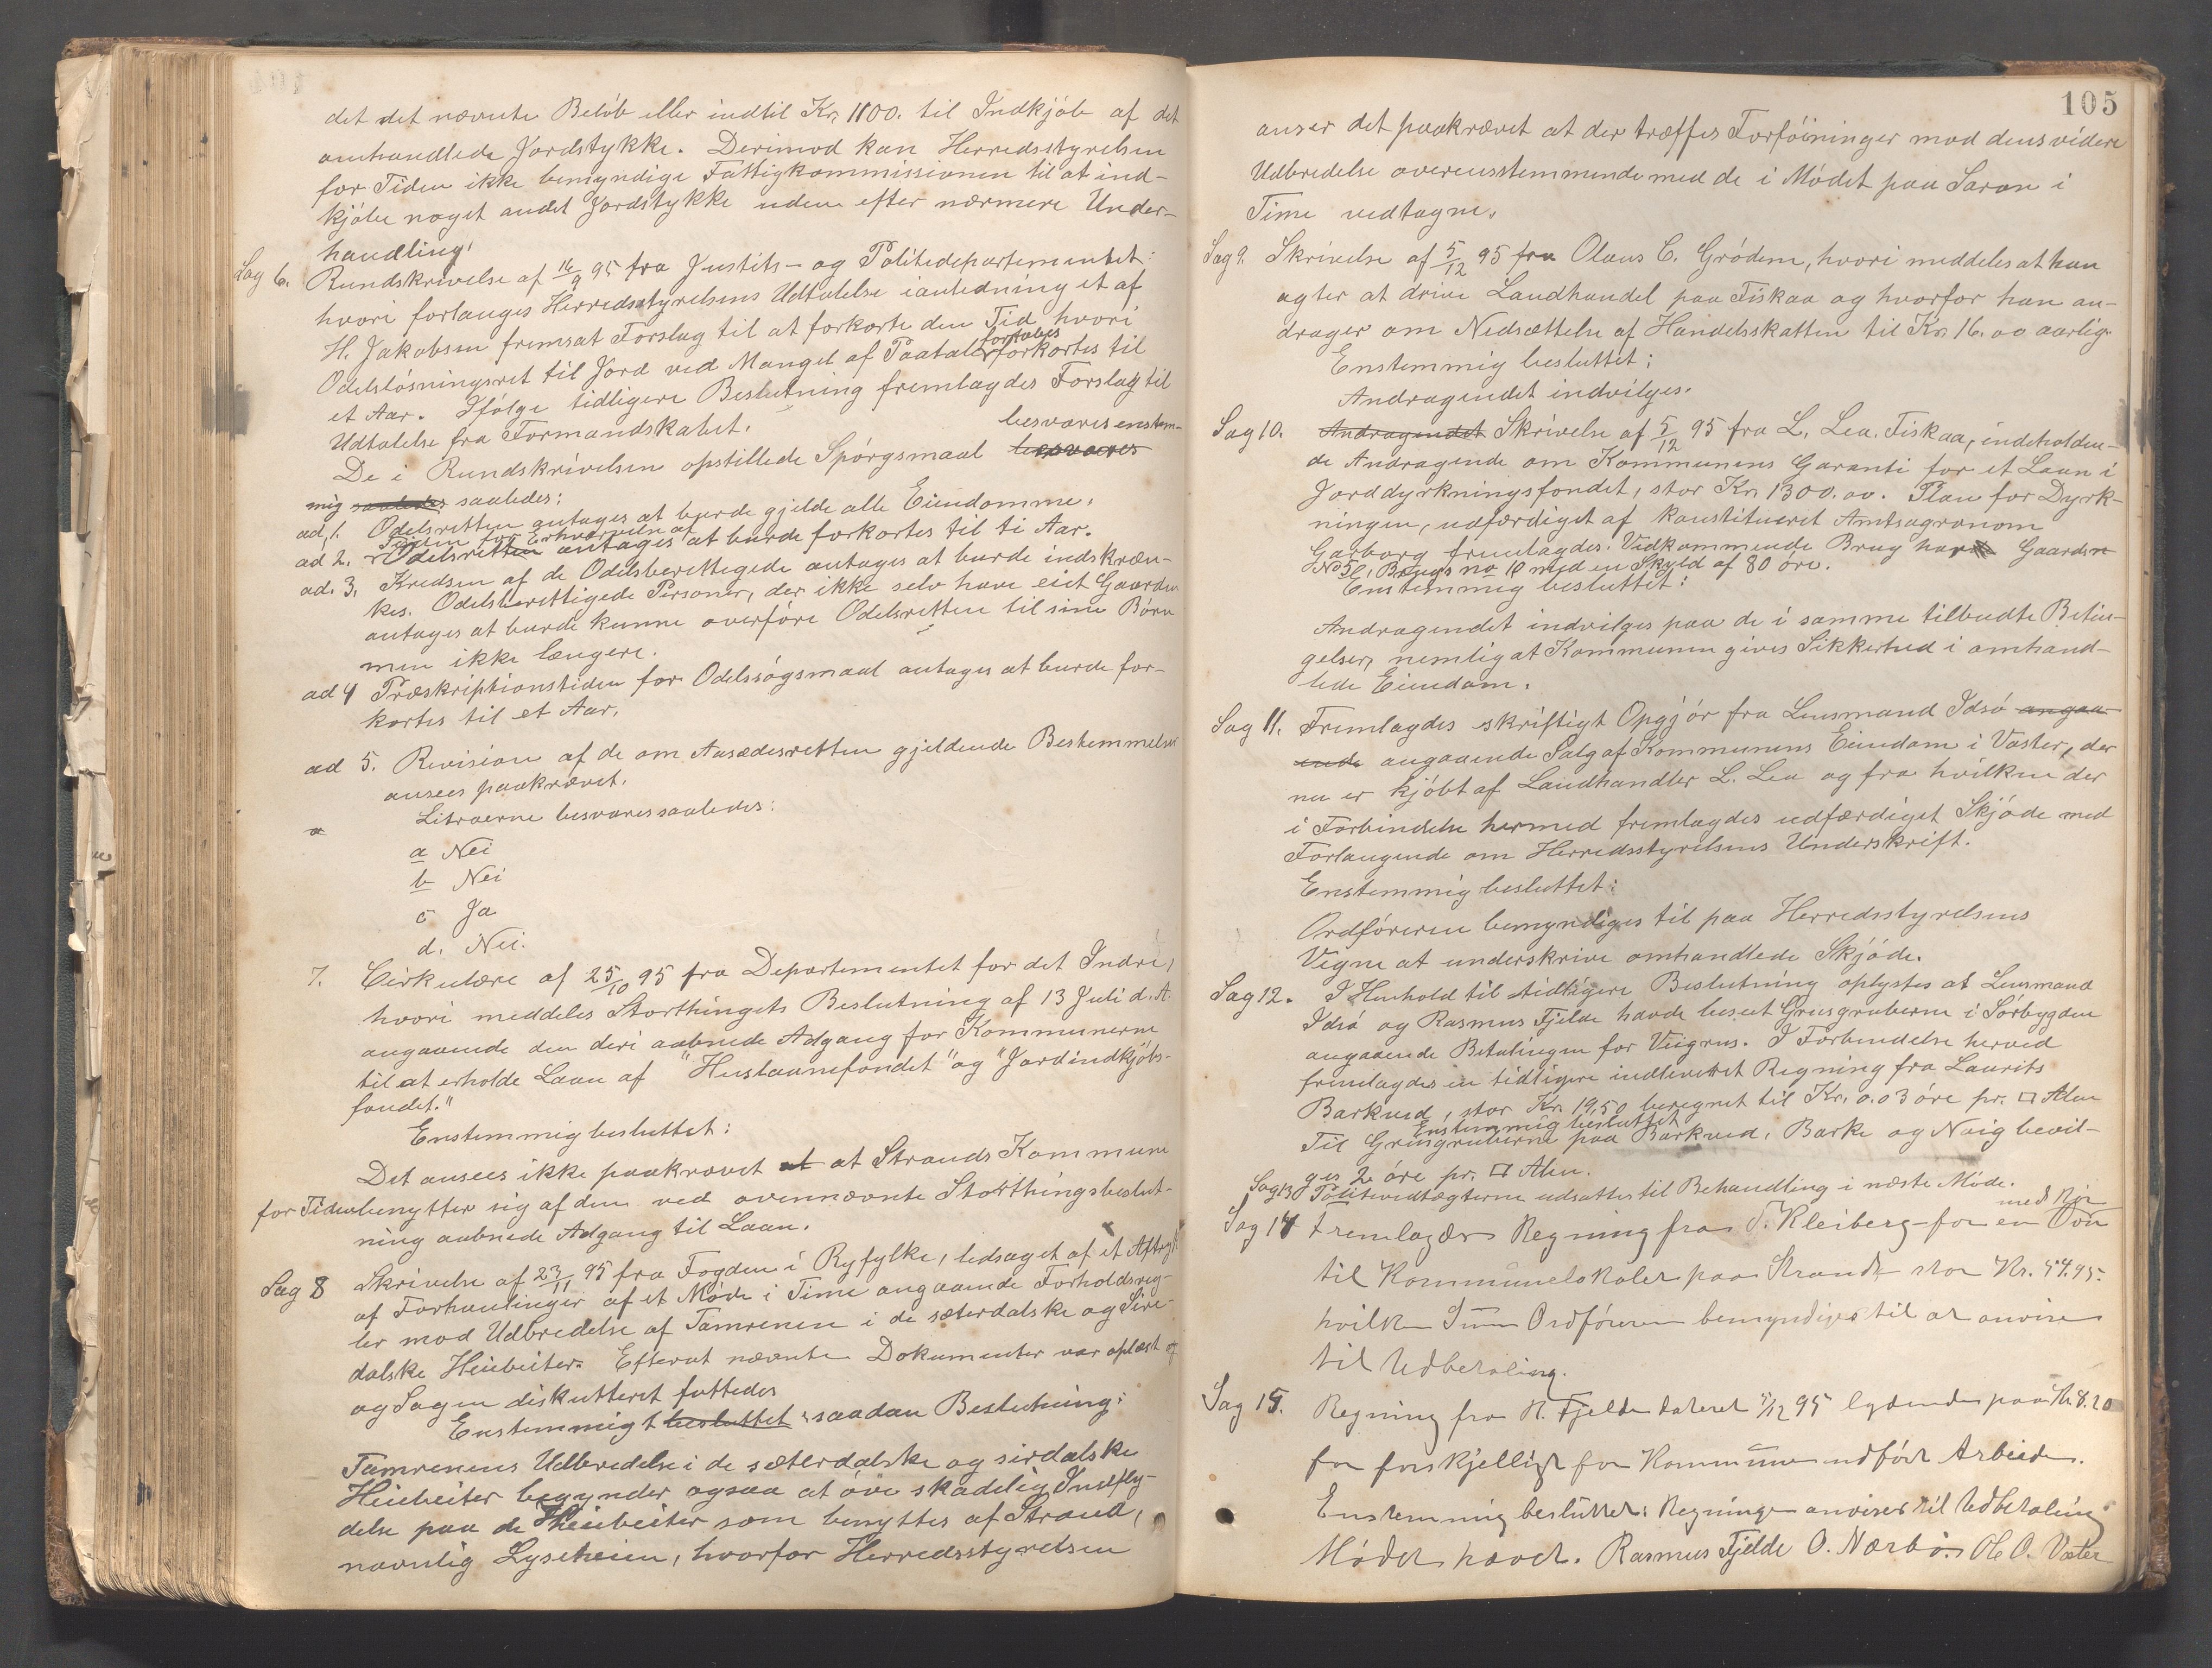 det det nævnte Beløb eller indtil Kr. 1100. til Indkjøb af det
omhandlede Jordstykke. Derimod kan Herredsstyrelsen
for Tiden ikke bemyndige Fattigkommissionen til at ind-
kjøbe noget andet Jordstykke uden efter nærmere Under-
handling.
Sag 6. Rundskrivelse af 16/9 95 fra Justits- og Politidepartementet:
hvori forlanges Herredsstyrelsens Udtalelse ianledning et af
H. Jakobsen fremsat Forslag til at forkorte den Tid hvori
Odelsløsningsret til Jord ved Mangel af Paatale fortabes forkortes til
et Aar. Ifølge tidligere Beslutning fremlagdes Forslag til
Udtalelse fra Formandskabet.
De i Rundskrivelsen opstillede Spørgsmaal besvares besvares enstem-
mig saaledes saaledes:
ad 1. Odelsretten antages at burde gjelde alle Eiendomme.
ad 2. Tiden for Erhvervelse af Odelsretten antages at burde forkortes til ti Aar.
ad. 3. Kredsen af de Odelsberettegede antages at burde indskræn-
kes. Odelsberettigede Personer, der ikke selv have eiet Gaarden
antages at burde kunne overføre Odelsretten til sine Børn
men ikke længere.
ad 4 Præskriptionstiden for Odelssøgsmaal antages at burde for-
kortes til et Aar.
ad 5. Revision af de om Aasædesretten gjeldende Bestemmelser
ansees paakrævet.
a Litraerne besvares saaledes:
a Nei
b Nei
c Ja
d. Nei.
7. Cirkulære af 25/10 95 fra Departementet for det Indre,
hvori meddeles Storthingets Beslutning af 13 Juli d. A.
angaaende den deri aabnede Adgang for Kommunerne
til at erholde Laan af "Huslaanefondet" og "Jordindkjøbs-
fondet."
Enstemmig besluttet:
Det ansees ikke paakrævet at at Strands Kommune
for Tiden benytter sig af den ved ovennævnte Storthingsbeslut-
ning aabnede Adgang til Laan.
Sag 8 Skrivelse af 23/11 95 fra Fogden i Ryfylke, ledsaget af et Aftryk
af Forhandlinger af et Møde i Time angaaende Forholdsreg-
ler mod Udbredelse af Tamrenen i de sæterdalske og Sire-
dalske Heiebeiter. Efterat nævnte Dokumenter var oplæst og
og Sagen diskutteret fattedes
Enstemmigt besluttet saadan Beslutning:
Tamrenens Udbredelse i de sæterdalske og sirdalske
Heiebeiter begynder ogsaa at øve skadelig Indfly-
delse paa de Heiebeiter som benyttes af Strand,
navnlig Lyseheien, hvorfor Herredsstyrelsen
105
anser det paakrævet at der træffes Forføininger mod dens videre
Udbredelse overensstemmende med de i Mødet paa Saron i
Time vedtagne.
Sag 9. Skrivelse af 5/12 95 fra Olaus C. Grødem, hvori meddeles at han
agter at drive Landhandel paa Fiskaa og hvorfor han an-
drager om Nedsættelse af Handelsskatten til Kr. 16.00 aarlig.
Enstemmig besluttet:
Andragendet indvilges.
Sag 10. Andragendet Skrivelse af 5/12 95 fra L. Lea. Fiskaa, indeholden-
de Andragende om Kommunens Garanti for et Laan i
Jorddyrkningsfondet, stor Kr. 1300.00. Plan for Dyrk-
ningen, udfærdiget af konstitueret Amtsagronom
Garborg fremlagdes. Vedkommende Brug har Gaards n
No 51, Brugs no 10 med en Skyld af 80 øre.
Enstemmig besluttet:
Andragendet indvilges paa de i samme tilbudte Betin-
gelser, nemlig at Kommunen gives Sikkerhed i omhand-
lede Eiendom.
Sag 11. Fremlagdes skriftligt Opgjør fra Lensmand Idsø angaa-
ende angaaende Salg af Kommunens Eiendom i Vaster, der
nu er kjøbt af Landhandler L. Lea og fra hvilken der
i Forbindelse hermed fremlagdes udfærdiget Skjøde med
Forlangende om Herredsstyrelsens Underskrift.
Enstemmig besluttet:
Ordføreren bemyndiges til paa Herredsstyrelsens
Vegne at underskrive omhandlede Skjøde.
Sag 12. I Henhold til tidligere Beslutning oplystes at Lensmand
Idsø og Rasmus Fjelde havde beseet Grusgruberne i Sørbygden
angaaende Betalingen for Veigrus. I Forbindelse herved
fremlagdes en tidligere indleveret Regning fra Laurits
Barkved, stor Kr. 19,50 beregnet til Kr. 0.03 øre pr. □ Alen
Enstemmig besluttet
Til Grusgruberne paa Barkved, Barke og Nøig bevil-
ges 2 øre pr. □ Alen.
Sag 13 Politivedtægterne udsattes til Behandling i næste Møde.
Sag 14 Fremlagdes Regning fra T. Kleiberg for en Ovn med Rør
til Kommunelokalet paa Strand stor Kr. 54.95.
hvilken Sum Ordføreren bemyndiges til at anvise
til Udbetaling.
Sag 15. Regning fra R. Fjelde dateret 5/12 95 lydende paa Kr. 8.20
for forskjelligt for Kommunen udført Arbeide.
Enstemmig besluttet: Regningen anvises til Udbetaling
Mødet hævet. Rasmus Fjelde O. Nærbø. Ole O. Vaster